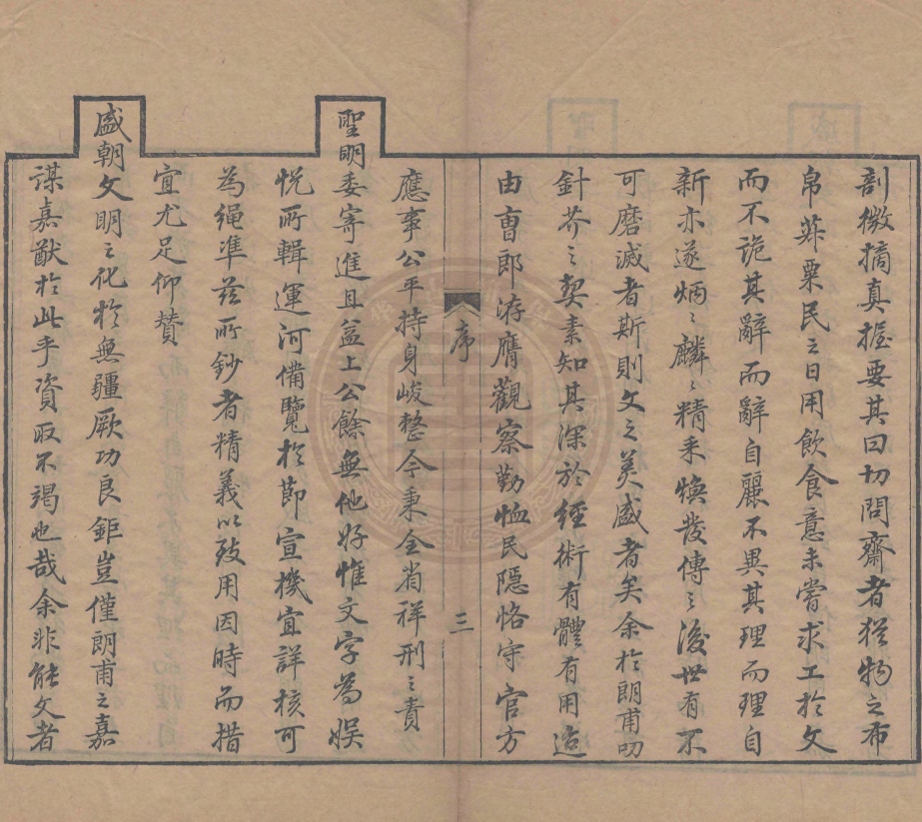 剖微摘真握要其曰切問齋者猶物之布
帛菽粟民之日用飲食意未嘗求工於文
而不詭其辭而辭自麗不異其理而理自
新亦遂炳〻麟〻精采煥發傳之後世有不
可磨滅者斯則文之美盛者矣余於朗甫叨
針芥之契素知其深於經術有體有用迨
由曹郎洊膺觀察勤恤民隱恪守官方
序
三
應事公平持身峻整今秉全省祥刑之責
聖明委寄進且益上公餘無他好惟文字為娛
悅所輯運河備覽於節宣機宜詳核可
為繩準茲所鈔者精義以致用因時而措
宜尤足仰贊
盛朝文明之化於無疆厥功良鉅豈僅朗甫之嘉
謀嘉猷於此乎資取不竭也哉余非能文者